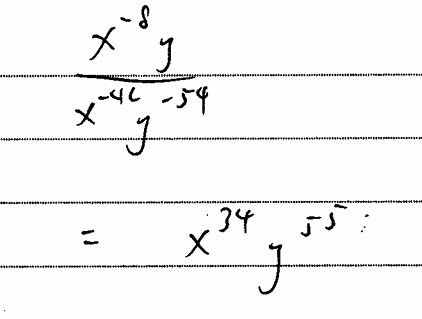 x^{-8}y
x^{-42}y^{-54}
= x^{34}y^{55}